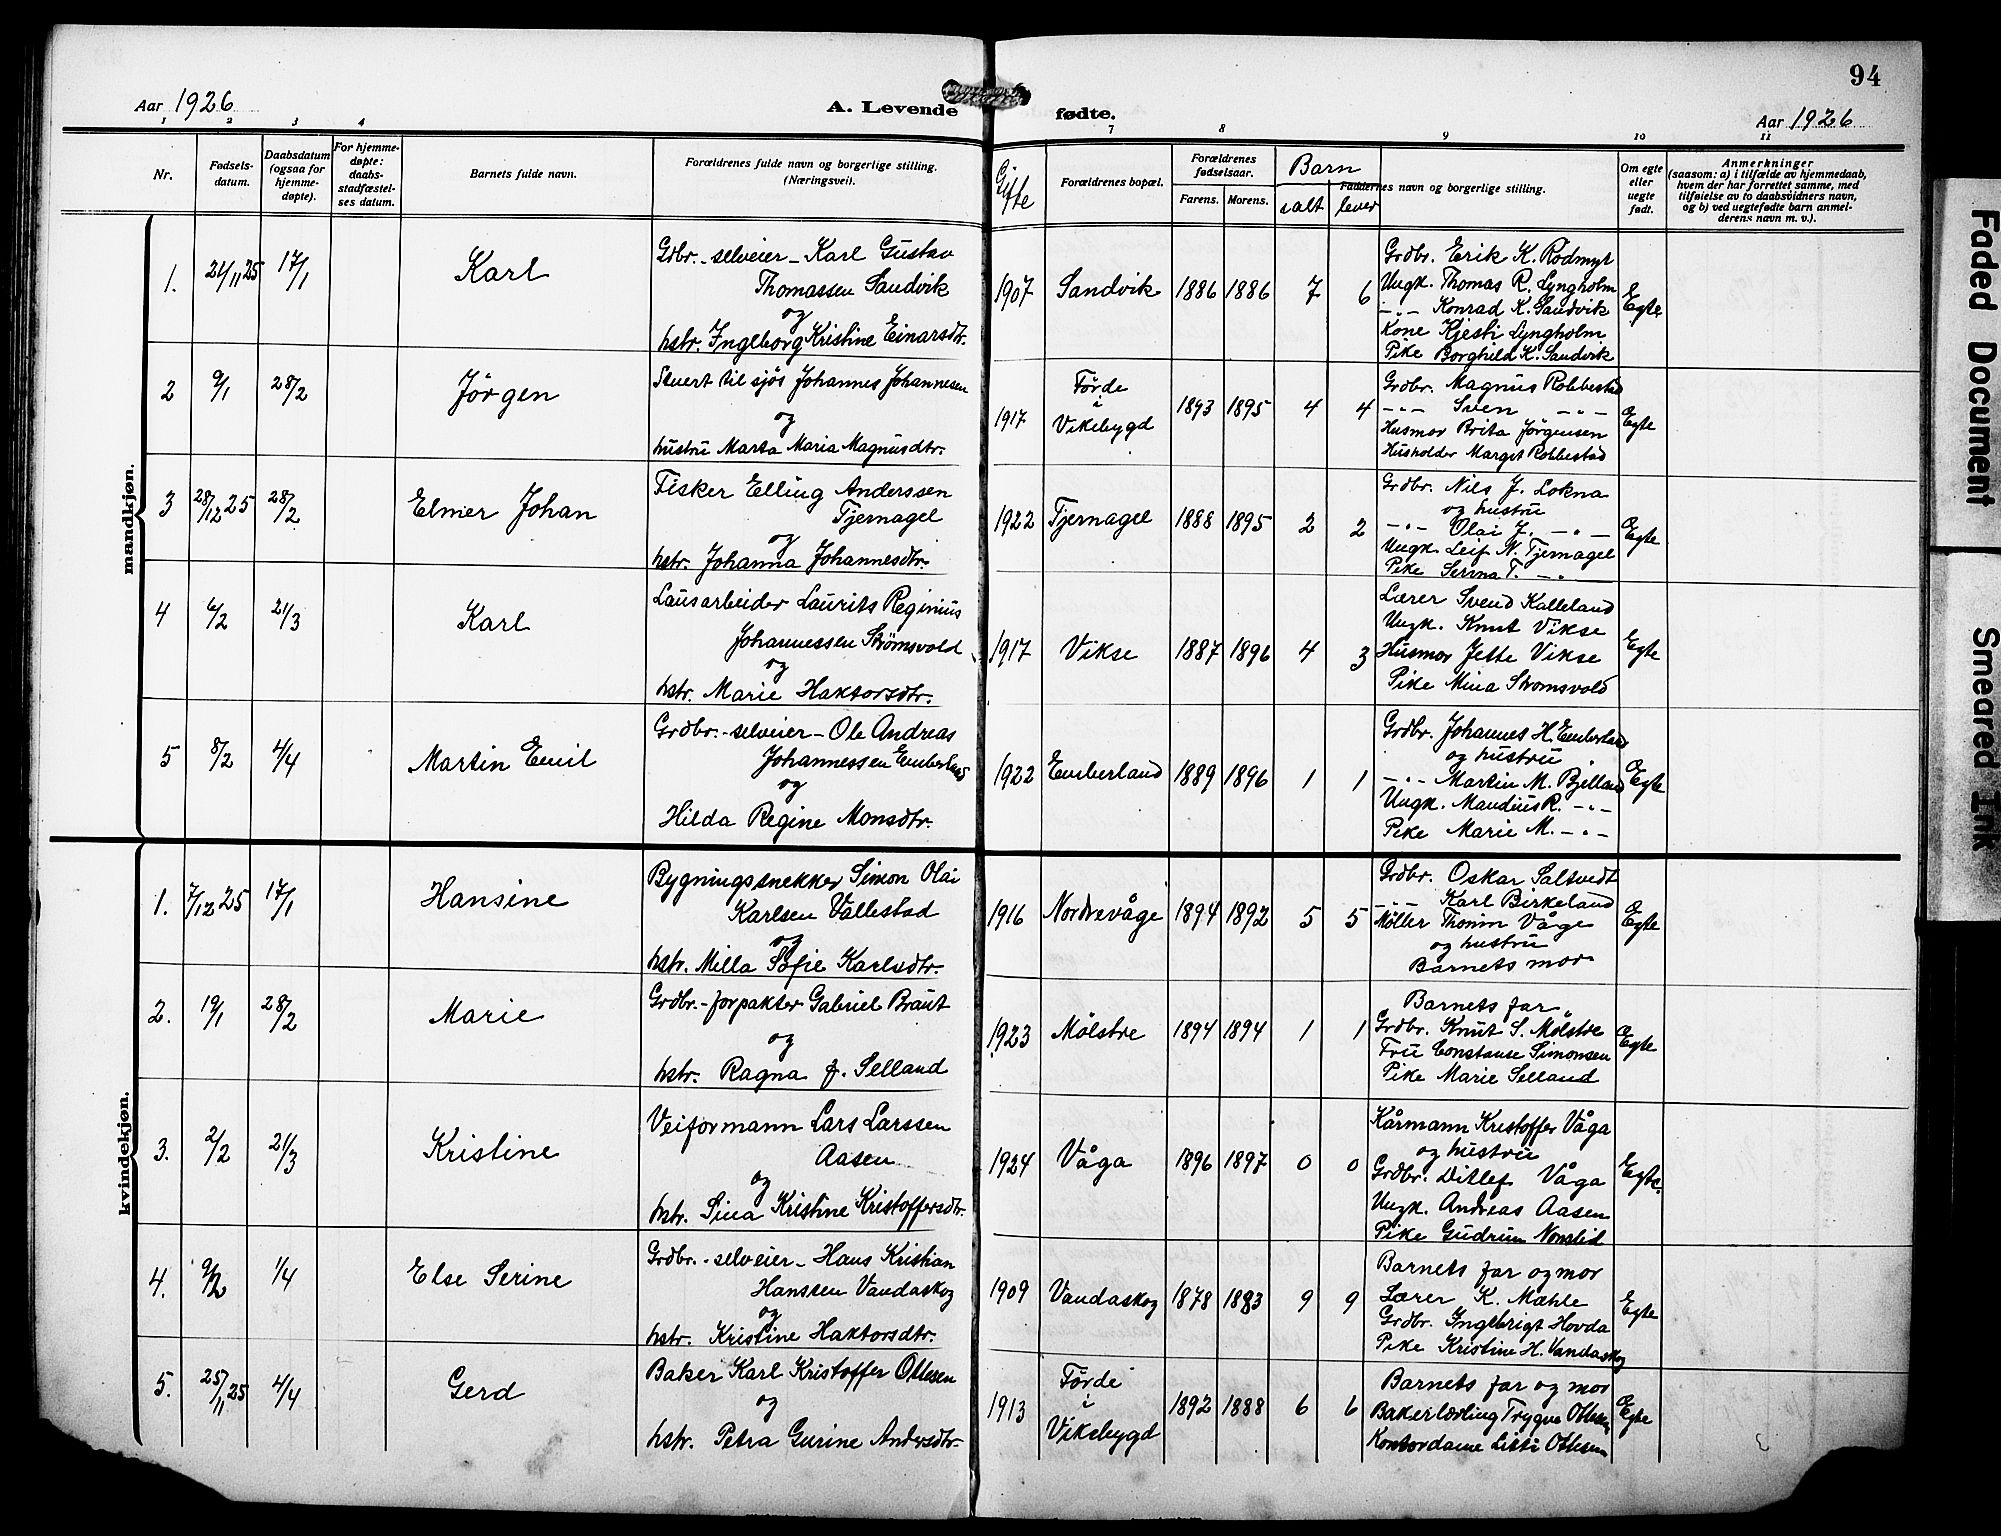 94
Aar 1926
A. Levende fødte.
Aar 1926
1 2 3 4 7 8 9 10 11
Nr.
Fødsels-
datum.
Daabsdatum
(ogsaa for
hjemme-
døpte).
For hjemme-
døpte:
daabs-
stadfæstel-
ses datum.
Barnets fulde navn.
Forældrenes fulde navn og borgerlige stilling.
(Næringsvei).
Gifte
Forældrenes bopæl.
Forældrenes
fødselsaar.
Farens. Morens.
Barn
ialt lever
Faddernes navn og borgerlige stilling.
Om egte
eller
uegte
født.
Anmerkninger
(saasom: a) i tilfælde av hjemmedaab,
hvem der har forrettet samme, med
tilføielse av to daabsvidners navn,
og b) ved uegtefødte barn anmel-
derens navn m. v.).
mandkjøn.
1. 21/11 25 17/1 Karl
Gdbr.-selveier- Karl Gustav
Thomassen Sandvik
og
hstr. Ingeborg Kristine Einarsdtr.
1907 Sandvik 1886 1886 7 6
Grdbr. Erik K. Rødmyr
Ungk. Thomas R. Lyngholm
-"- Konrad K. Sandvik
Kone Kjesti Lyngholm
Pike Borghild K. Sandvik
Egte
2 9/1 28/2 Jørgen
Stuert til sjøs Johannes Johannesen
og
hustru Marta Maria Magnusdtr.
1917 Førde
i
Vikebygd 1893 1895 4 4
Grdbr. Magnus Robbestad
-"- Sven -"-
Husmor Brita Jørgensen
Husholder Margit Robbestad
Egte
3 28/12 25 28/2 Elmer Johan
Fisker Elling Anderssen
Tjernagel
og
hstr. Johanna Johannesdtr.
1922 Tjernagel 1888 1895 2 2
Grdbr. Nils J. Lokna
og hustru
-"- Olai J. -"-
Ungk. Leif N. Tjernagel
Pike Serina T. -"-
Egte
4 6/2 21/3 Karl
Lausarbeider Laurits Reginius
Johannessen Strømsvold
og
hstr. Marie Haktorsdtr.
1917 Vikse 1887 1896 4 3
Lærer Svend Kalleland
Ungk. Knut Vikse
Husmor Jette Vikse
Pike Mina Strømsvold
Egte
5 8/2 4/4 Martin Emil
Grdbr.-selveier- Ole Andreas
Johannessen Emberland
og
Hilda Regine Monsdtr.
1922 Emberland 1889 1896 1 1
Grdbr. Johannes H. Emberland
og hustru
-"- Martin M. Bjelland
Ungk. Mandius R. -"-
Pike Marie M. -"-
Egte
kvindekjøn.
1. 7/12 25 17/1 Hansine
Bygningssnekker Simon Olai
Karlsen Vallestad
og
hstr. Milla Sofie Karlsdtr.
1916 Nordrevåge 1894 1892 5 5
Grdbr. Oskar Saltvedt
-"- Karl Birkeland
Møller Thomm Våge
og hustru
Barnets mor
Egte
2. 19/1 28/2 Marie
Grdbr.-forpakter Gabriel Braut
og
hstr. Ragna f. Selland
1923 Mølstre 1894 1894 1 1
Barnets far
Grdbr. Knut S. Mølstre
Fru Constanse Simonsen
Pike Marie Selland
Egte
3. 2/2 21/3 Kristine
Veiformann Lars Larssen
Aasen
og
hstr. Sina Kristine Kristoffersdtr.
1924 Våga 1896 1897 0 0
Kårmann Kristoffer Våga
og hustru
Grdbr. Ditlef Våga
Ungk. Andreas Aasen
Pike Gudrun Nonslid
Egte.
4. 9/2 1/4 Else Serine
Grdbr.-selveier- Hans Kristian
Hanssen Vandaskog
og
hstr. Kristine Haktorsdtr.
1909 Vandaskog 1878 1883 9 9
Barnets far og mor
Lærer K. Mæhle
Grdbr. Ingebrigt Hovda
Pike Kristine H. Vandaskog
Egte
5. 25/11 25 4/4 Gerd
Baker Karl Kristoffer Ottesen
og
hstr. Petra Gurine Andersdtr.
1913 Førde
i
Vikebygd 1892 1888 6 6
Barnets far og mor
Bakerlærling Trygve Ottesen
Kontordame Lissi Ottesen
Egte
Faded Document
Smeared Ink